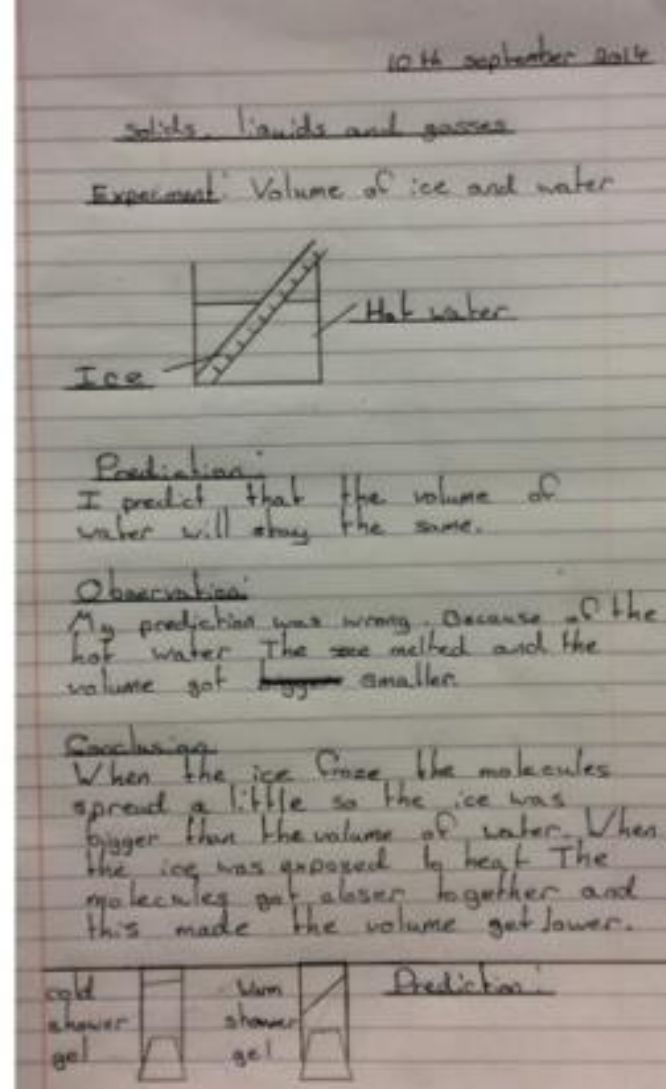 10th september 2014
solids, liquids and gasses
Experiment: Volume of ice and water
Hot water
Ice
Prediction:
I predict that the volume of
water will stay the same.
Observation:
My prediction was wrong. Because of the
hot water The melted and the
volume got smaller.
Conclusion
When the ice froze the molecules
spread a little so the ice was
bigger than the volume of water. When
the ice was exposed to heat The
molecules got closer together and
this made the volume get lower.
cold
shower
gel
Warm
shower
gel
Prediction: